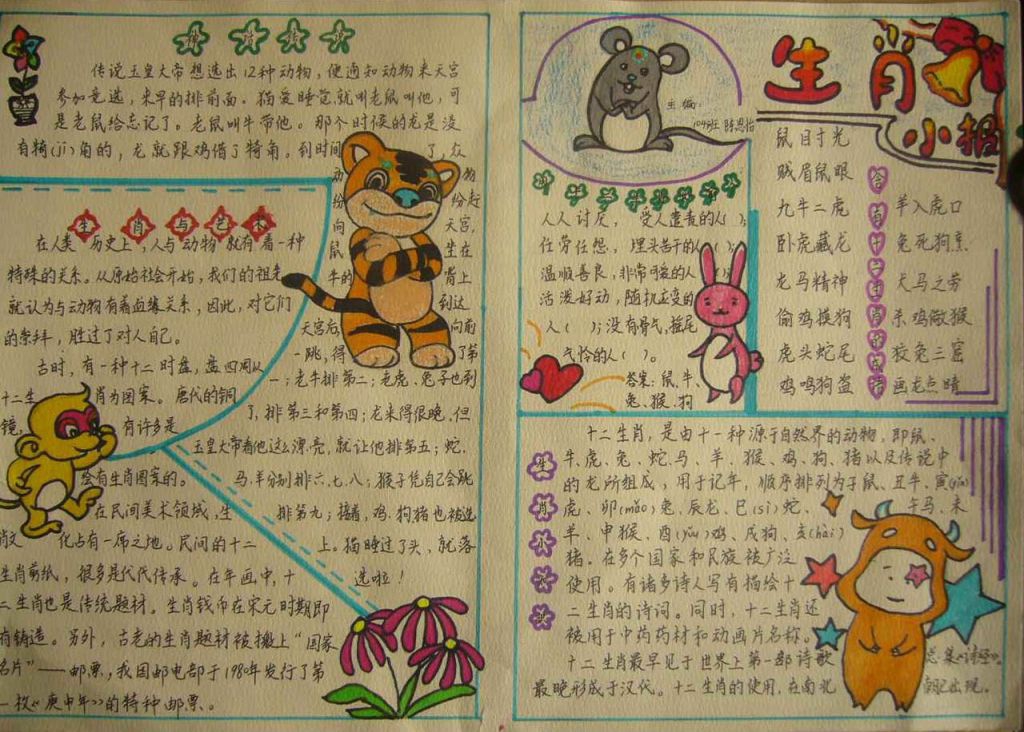 传说玉皇大帝想选出12种动物，便通知动物来天宫
参加竞选，来早的排前面。猫爱睡觉就叫老鼠叫他，可
是老鼠给忘记了。老鼠叫牛带他。那个时候的龙是没
有犄(jī)角的，龙就跟鸡借了犄角。到时间了，众
动物
纷纷赶
向天宫，
鼠坐在
牛的背上
到达
天宫后，向前
一跳，得了第
一；老牛排第二；老虎、兔子也到
了，排第三和第四；龙来得很晚，但
玉皇大帝看他这么漂亮，就让他排第五；蛇、
马、羊分别排六、七、八；猴子凭自己会跳
排第九；接着，鸡、狗、猪也被选
上。猫睡过了头，就落
选啦！
生肖与艺术
在人类历史上，人与动物就有着一种
特殊的关系。从原始社会开始，我们的祖先
就认为与动物有着血缘关系，因此，对它们
的崇拜，胜过了对人自己。
古时，有一种十二时盘，盘四周以
十二生肖为图案。唐代的铜
镜，有许多是
会有生肖图案的。
在民间美术领域，生
肖文化占有一席之地。民间的十二
生肖剪纸，很多是代代传承。在年画中，十
二生肖也是传统题材。生肖钱币在宋元时期即
有铸造。另外，古老的生肖题材被搬上“国家
名片”——邮票，我国邮电部于1980年发行了第
一枚《庚申年》的特种邮票。
主编：
生肖
小报
人人讨厌，受人谴责的人( )；
任劳任怨，埋头苦干的人( )；
温顺善良，非常可爱的人( )；
活泼好动，随机应变的
人( )；没有骨气，摇尾
乞怜的人( )。
答案：鼠、牛、
兔、猴、狗
鼠目寸光
贼眉鼠眼
九牛二虎
卧虎藏龙
龙马精神
偷鸡摸狗
虎头蛇尾
鸡鸣狗盗
含有十二生肖的成语
羊入虎口
兔死狗烹
犬马之劳
杀鸡儆猴
狡兔三窟
画龙点睛
十二生肖，是由十一种源于自然界的动物，即鼠、
牛、虎、兔、蛇、马、羊、猴、鸡、狗、猪以及传说中
的龙所组成，用于记年，顺序排列为子鼠、丑牛、寅(yín)
虎、卯(mǎo)兔、辰龙、巳(sì)蛇、午马、未
羊、申猴、酉(yǒu)鸡、戌狗、亥(hài)
猪。在多个国家和民族被广泛
使用。有诸多诗人写有描绘十
二生肖的诗词。同时，十二生肖还
被用于中药药材和动画片名称。
十二生肖最早见于世界上第一部诗歌总集《诗经》。
最晚形成于汉代。十二生肖的使用，在南北朝已出现。